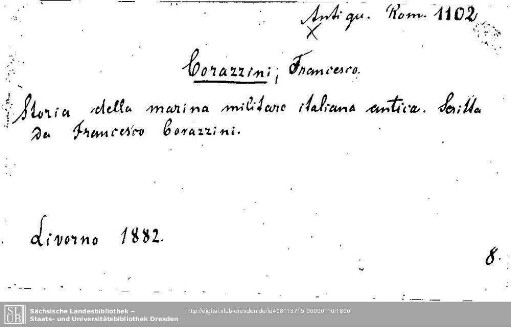 Antiqu. Rom. 1102
Corazzini, Francesco.
Storia della marina militare italiana antica. Scritta
da Francesco Corazzini.
Livorno 1882.
8.
SLUB
Sächsische Landesbibliothek –
Staats- und Universitätsbibliothek Dresden